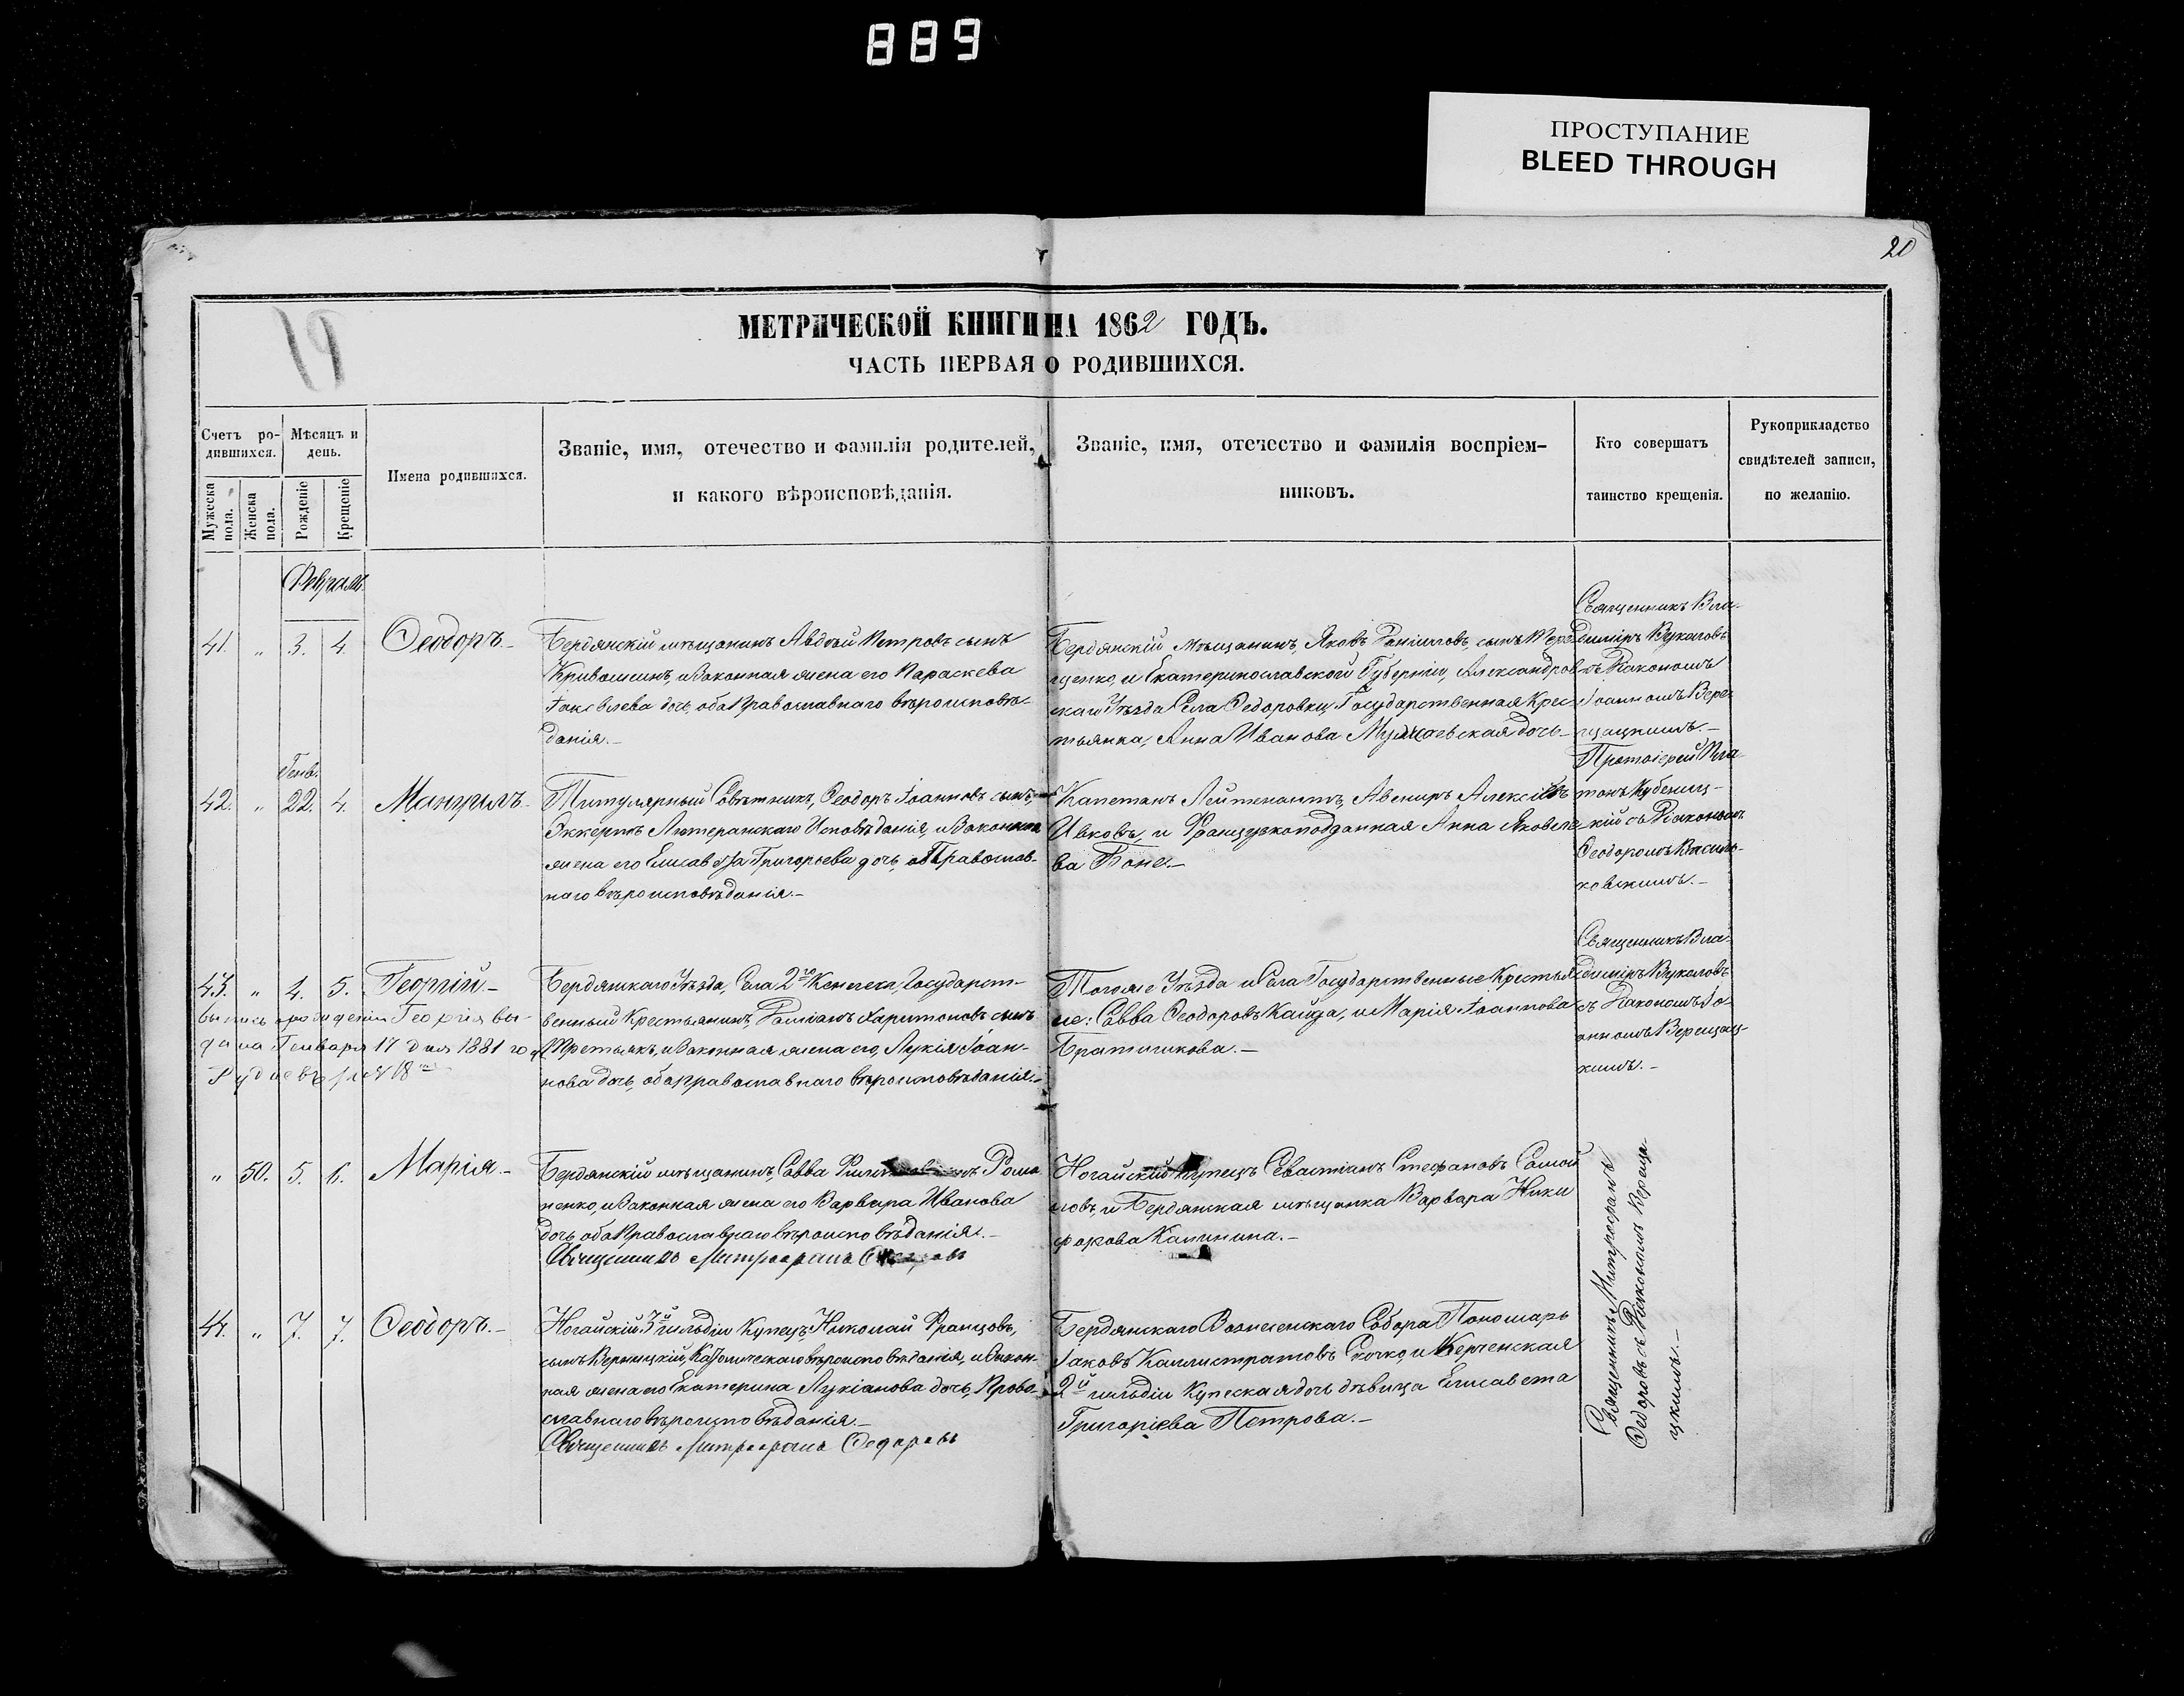 889
ПРОСТУПАНИЕ
BLEED THROUGH
20
19
МЕТРИЧЕСКОЙ КНИГИ НА 1862 ГОДЪ.
ЧАСТЬ ПЕРВАЯ О РОДИВШИХСЯ.
Счетъ ро-
дившихся.
Мужеска
пола.
Женска
пола.
Мѣсяцъ и
день.
Рожденіе
Крещеніе
Имена родившихся.
Званіе, имя, отечество и фамилія родителей,
и какого вѣроисповѣданія.
Званіе, имя, отечество и фамилія воспріем-
никовъ.
Кто совершатъ
таинство крещенія.
Рукоприкладство
свидѣтелей записи,
по желанію.
Февраль
41. " 3. 4. Ѳеодоръ.-
Бердянскій мѣщанинъ, Авдѣй Петровъ сынъ
Кривошеинъ, и законная жена его Параскева
Іаковлева дочь, оба Православнаго вѣроисповѣ-
данія.-
Бердянскій мѣщанинъ, Яковъ Даніиловъ, сынъ
щенко, и Екатеринославской Губерніи, Александров-
скаго Уѣзда Села Ѳедоровки, Государственная Крес-
тьянка, Анна Иванова дочь-
Священникъ Вла-
диміръ Вукаловъ
съ Діакономъ
Іоанномъ Вере-
щацкимъ.-
Генв.
42. " 22. 4. Мануилъ.-
Титулярный Совѣтникъ, Ѳеодоръ Іоанновъ сынъ,
Эккертъ Лютеранскаго Исповѣданія, и Законная
жена его Елисавета Григорьева дочь, Православ-
наго вѣроисповѣданія.-
Капетанъ Лейтенантъ, Авениръ Алексіевъ
Ивковъ, и Французкоподданная Анна Яковле-
ва Боне.-
Протоіерей Пла-
тонъ
кій съ Діакономъ
Ѳеодоромъ Василь-
ковскимъ.-
43. " 4. 5. Георгій.-
Бердянскаго Уѣзда, Села 2го Кенегеса, Государст-
венный Крестьянинъ, Романъ Харитоновъ сынъ
Третьякъ, и Законная жена его, Лукія Іоан-
нова дочь, оба православнаго вѣроисповѣданія.-
Тогоже Уѣзда и Села Государственные Крестья-
не: Савва Ѳеодоровъ Кайда, и Марія Іоаннова
Братишкова.-
Священникъ Вла-
диміръ Вукаловъ
съ Діакономъ Іо-
анномъ Верещац-
кимъ.-
Выпись о рожденіи Георгія вы-
дана Января 17 дня 1881 год
" 50. 5. 6. Марія.-
Бердянскій мѣщанинъ, Савва Рома
ненко, и Законная жена его Варвара Иванова
дочь, оба Православнаго вѣроисповѣданія.-
Священникъ Митрофанъ
Ногайскій купецъ Севастіанъ Стефановъ Самой
ловъ, и Бердянская мѣщанка Варвара Ники
форова Калинина.-
44. " 7. 7. Ѳеодоръ.-
Ногайскій 3й гильдіи Купецъ, Николай Францовъ,
сынъ Верницкій, Католическаго вѣроисповѣданія, и Закон-
ная жена его Екатерина Лукіанова дочь, Право-
славнаго вѣроисповѣданія.-
Священникъ Митрофанъ Ѳедоровъ
Бердянскаго Вознесенскаго Собора Пономарь
Іаковъ Каллистратовъ Скочко, и Керченская
2й гильдіи Купеская дочь дѣвица Елисавета
Григоріева Петрова.-
Священникъ Митрофанъ
Ѳедоровъ съ Діакономъ Вереща-
цкимъ.-